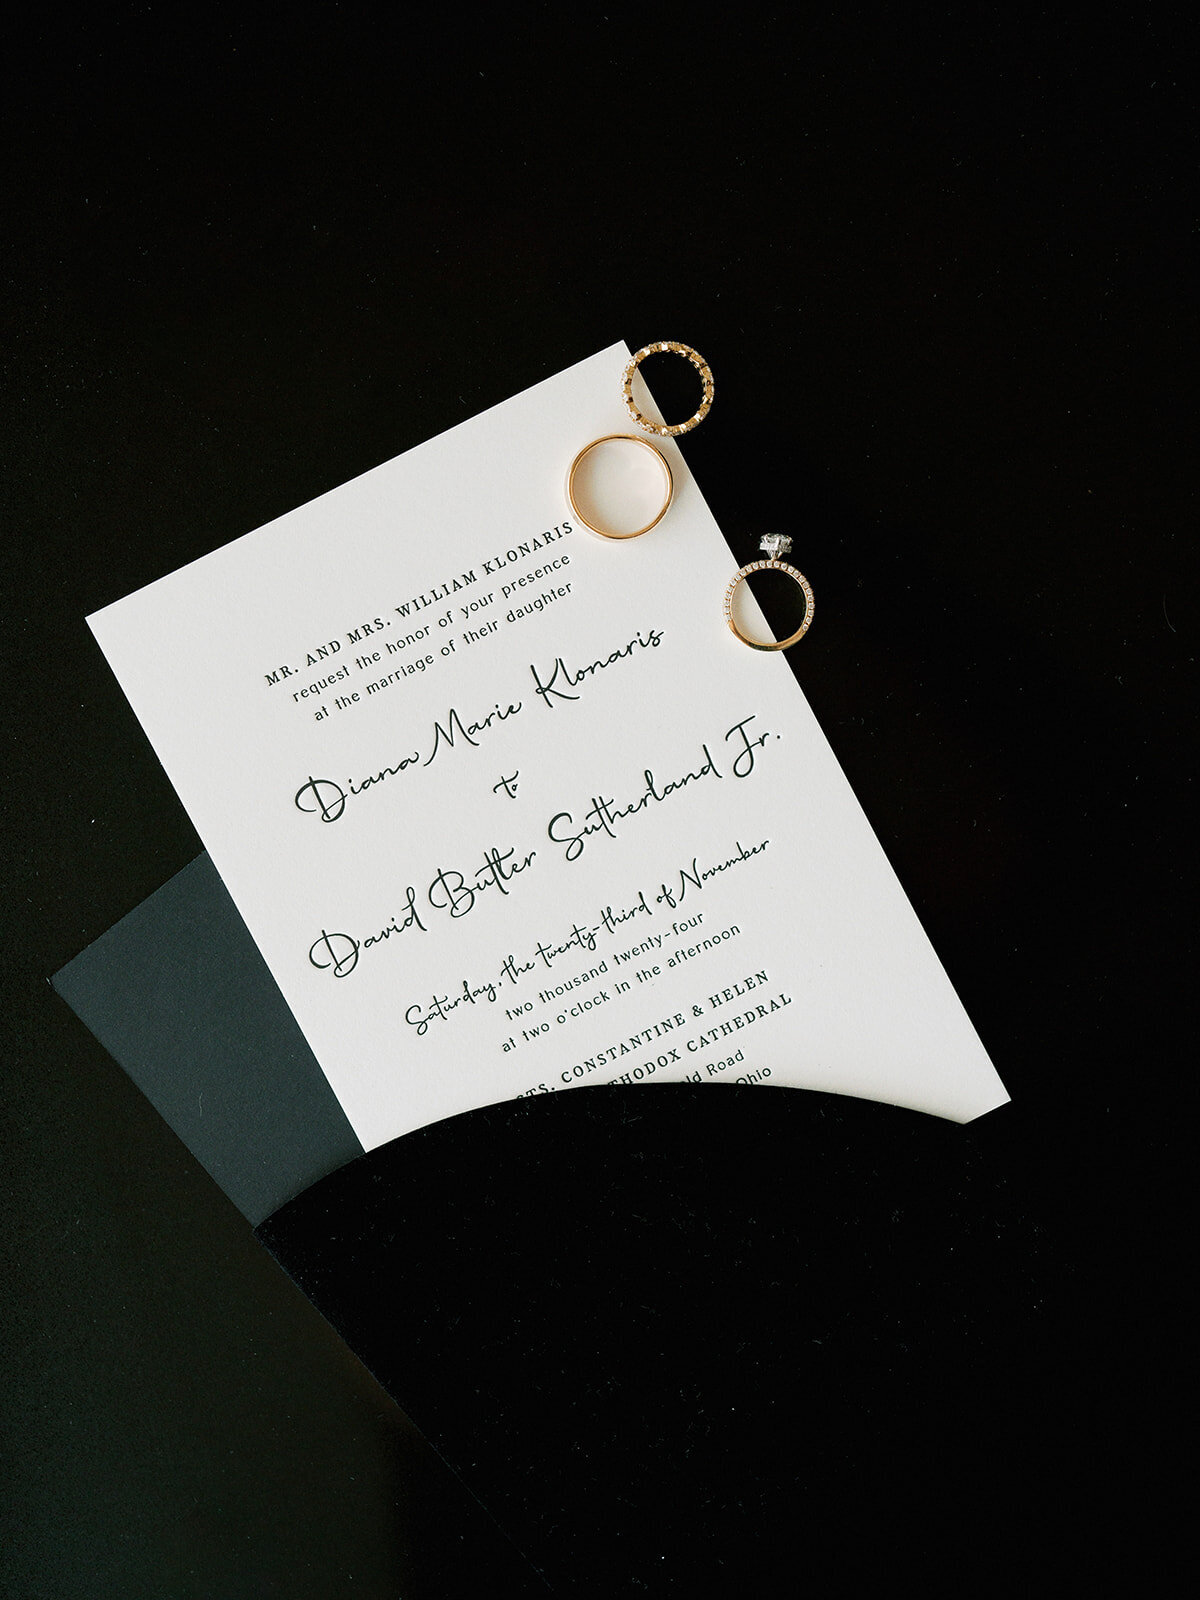 MR. AND MRS. WILLIAM KLONARIS
request the honor of your presence
at the marriage of their daughter
Diana Marie Klonaris
to
David Butler Sutherland Jr.
Saturday, the twenty-third of November
two thousand twenty-four
at two o'clock in the afternoon
CONSTANTINE & HELEN
CATHEDRAL
Road
Ohio